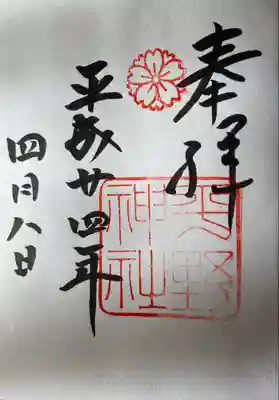 奉拝
平成廿四年
四月八日
野
神社